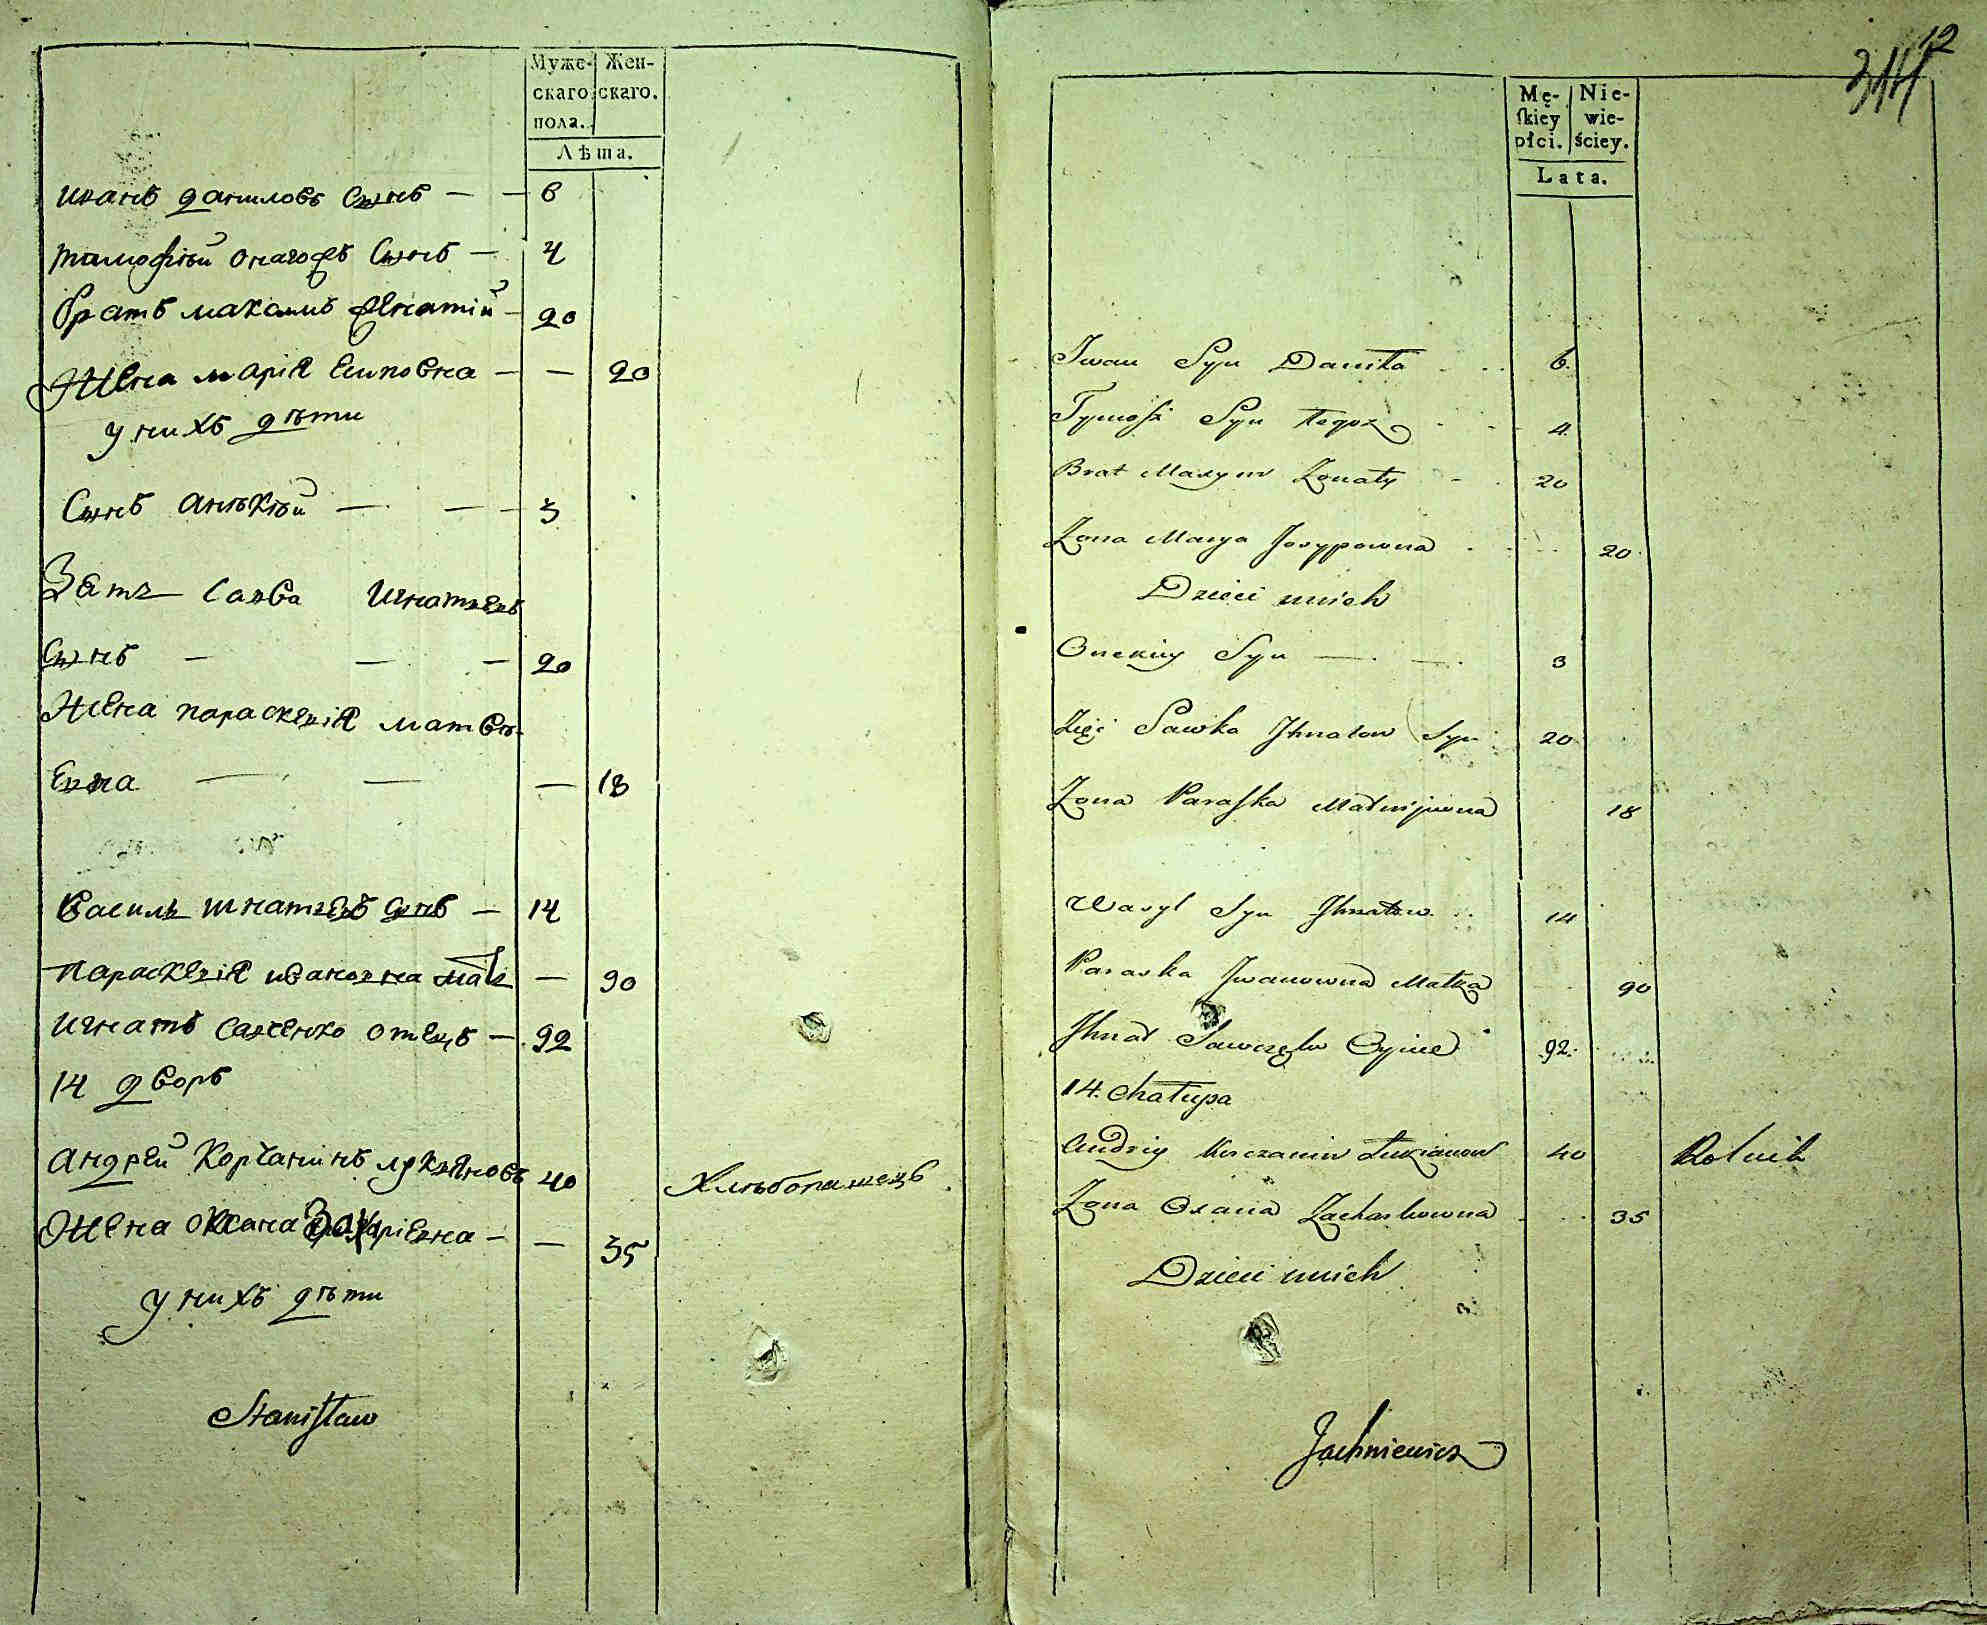 Муже-
скаго
пола.
Жен-
скаго.
Лѣта.
иванъ даниловъ сынъ — — 6
тимофѣй онагожъ сынъ — 4
братъ максимъ женатій — 20
жена марія есиповна — — 20
у нихъ дѣти
сынъ анѣкѣй — — — 3
зать савва игнатьевъ
сынъ — — — 20
жена параскевія матвѣ-
евна — — — 18
василь игнатьевъ сынъ — 14
параскевія ивановна мать — 90
игнатъ савченко отецъ — 92
14 дворъ
андрей корчанинъ лукьяновъ 40 хлѣбопашецъ
жена оксана захаріевна — — 35
у нихъ дѣти
Stanisław
12
314
Mę-
skiey
płci.
Nie-
wie-
ściey.
Lata.
Iwan Syn Daniła 6.
Tymosz Syn tegoz 4.
Brat Maxym Zonaty 20
Zona Marya Josypowna 20
Dzieci unich
Onekiy Syn — — 3
Zięć Sawka Ihnatow Syn 20
Zona Paraska Matwijowna 18
Wasyl Syn Ihnatow 14
Paraska Iwanowna Matka 90
Ihnat Sawczęko Oyciec 92.
14. Chałupa
Andriy Korczanin Łukianow 40 Rolnik
Zona Oxana Zacharkowna 35
Dzieci unich
Jachniewicz